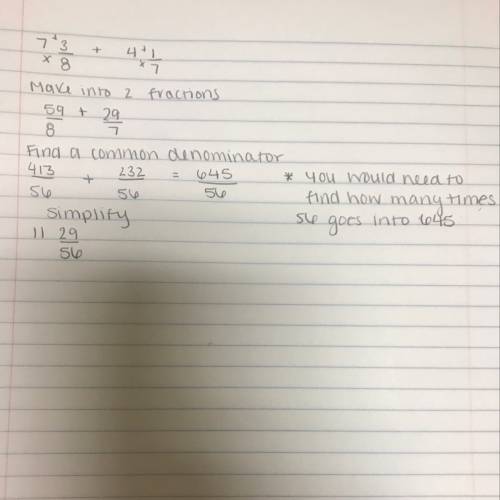 7 + 3/8 + 4 + 1/7
x x
Make into 2 fractions
59/8 + 29/7
Find a common denominator
413/56 + 232/56 = 645/56 * you would need to
find how many times
simplify 56 goes into 645
11 29/56